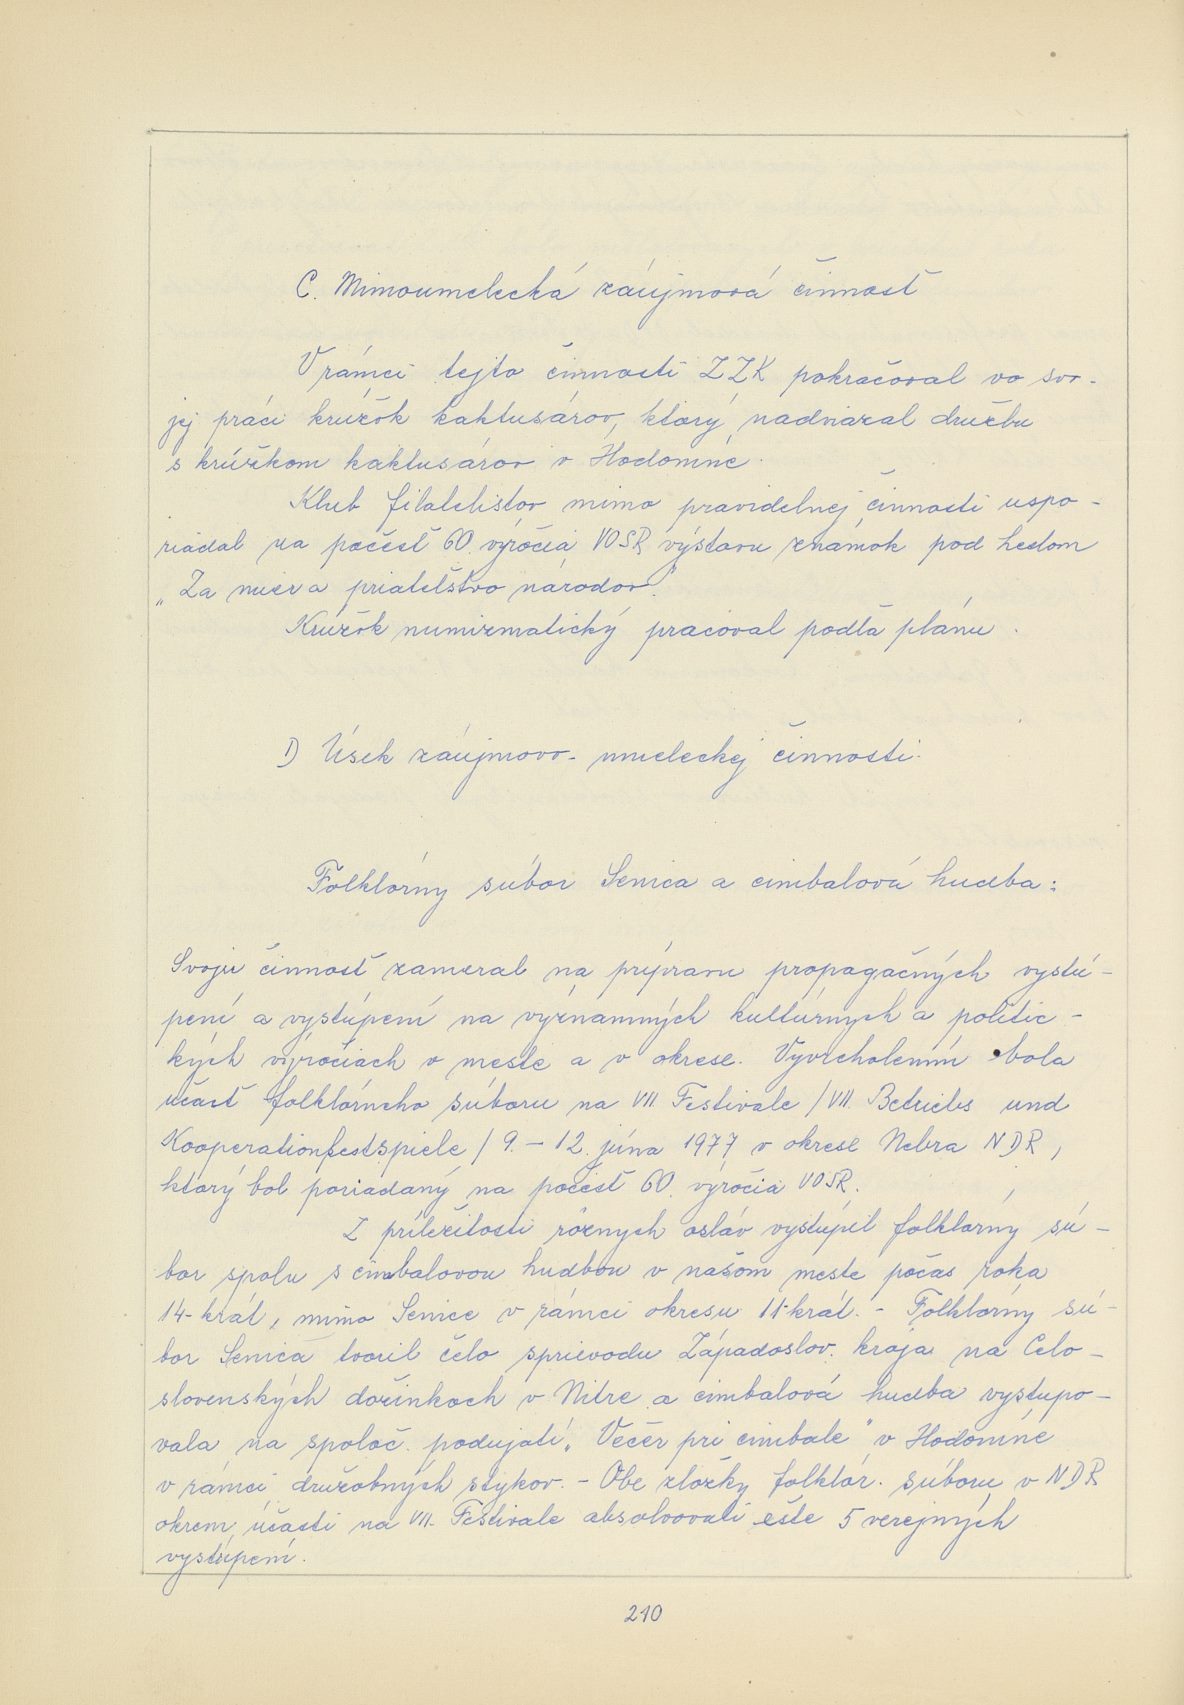 C. Mimoumelecká záujmová činnosť
V rámci tejto činnosti ZZK pokračoval vo svo-
jej práci krúžok kaktusárov, ktorý nadviazal družbu
s krúžkom kaktusárov v Hodoníne.
Klub filatelistov mimo pravidelnej činnosti uspo-
riadal na počesť 60. výročia VOSR výstavu známok pod heslom
„Za mier a priateľstvo národov."
Krúžok numizmatický pracoval podľa plánu.
D) Úsek záujmovo-umeleckej činnosti.
Folklórny súbor Senica a cimbalová hudba:
Svoju činnosť zameral na prípravu propagačných vystú-
pení a vystúpení na významných kultúrnych a politic-
kých výročiach v meste a v okrese. Vyvrcholením bola
účasť folklórneho súboru na VII. Festivale /VII. Betriebs und
Kooperationfestspiele/ 9. – 12. júna 1977 v okrese Nebra NDR,
ktorý bol poriadaný na počesť 60. výročia VOSR.
Z príležitosti rôznych osláv vystúpil folklórny sú-
bor spolu s cimbalovou hudbou v našom meste počas roka
14-krát, mimo Senice v rámci okresu 11-krát. - Folklórny sú-
bor Senica tvoril čelo sprievodu Západoslov. kraja na Celo-
slovenských dožinkoch v Nitre a cimbalová hudba vystupo-
vala na spoloč. podujatí „Večer pri cimbale" v Hodoníne
v rámci družobných stykov. - Obe zložky folklór. súboru v NDR
okrem účasti na VII. Festivale absolvovali ešte 5 verejných
vystúpení.
210